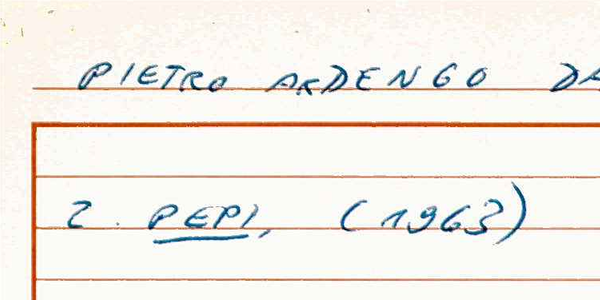 PIETRO ARDENGO DA
2. PEPI, (1963)